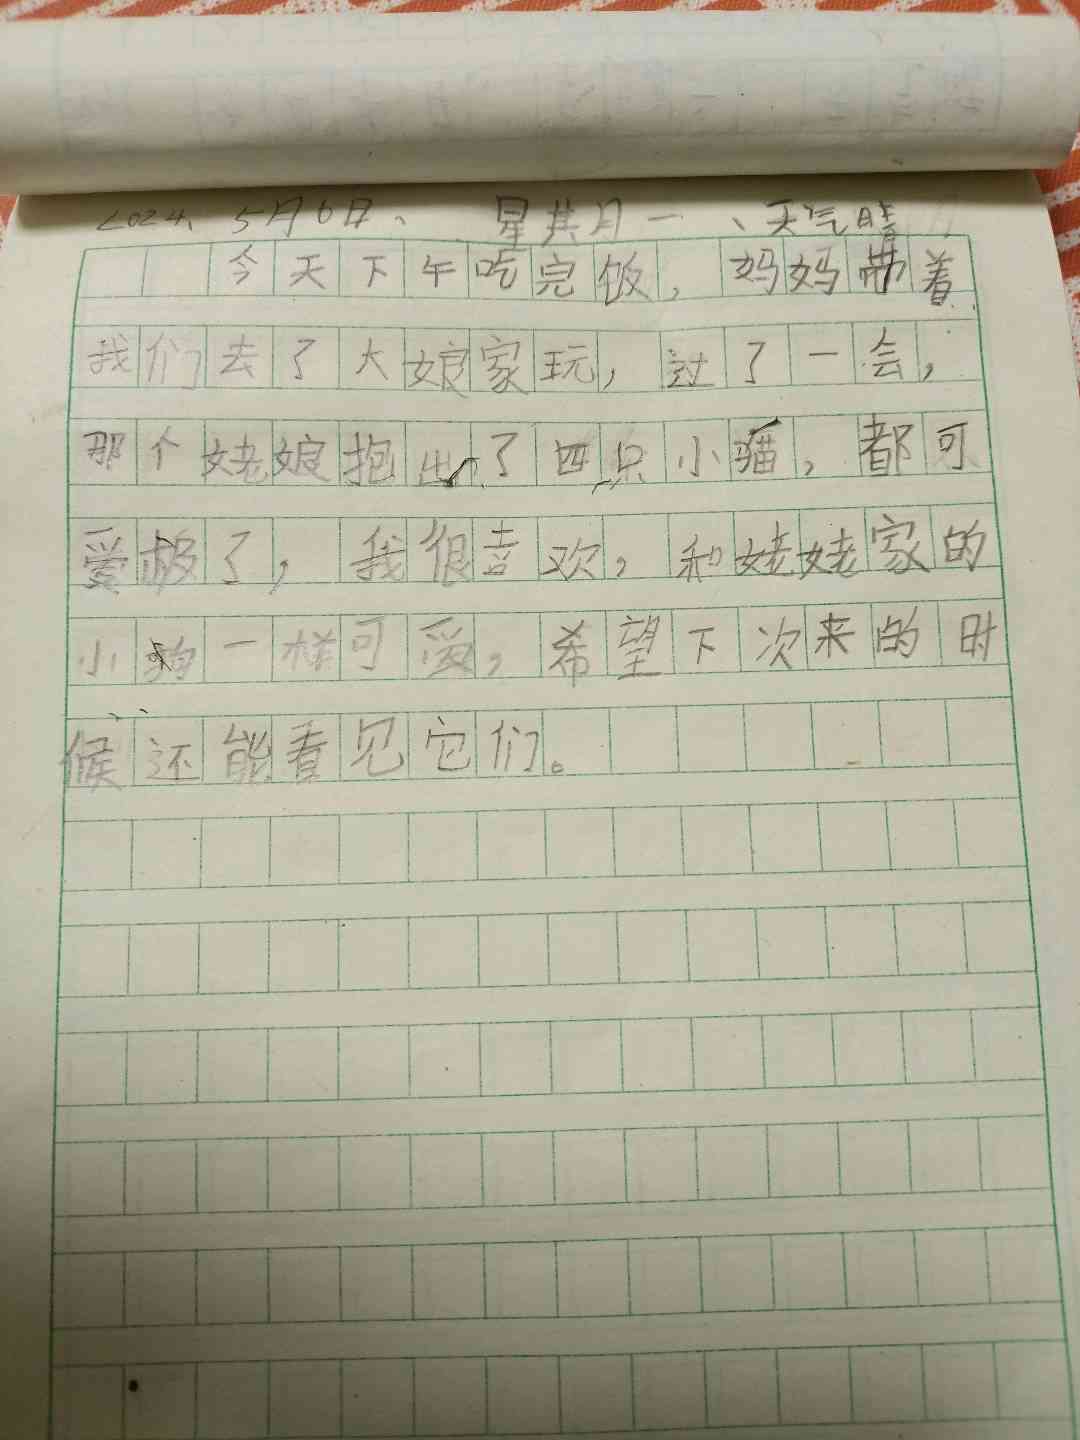 2024、5月6日、 星其月一、天气晴
今天下午吃完饭，妈妈带着
我们去了大娘家玩，过了一会，
那个姥娘抱出了四只小猫，都可
爱极了，我很喜欢，和姥姥家的
小狗一样可爱，希望下次来的时
候还能看见它们。